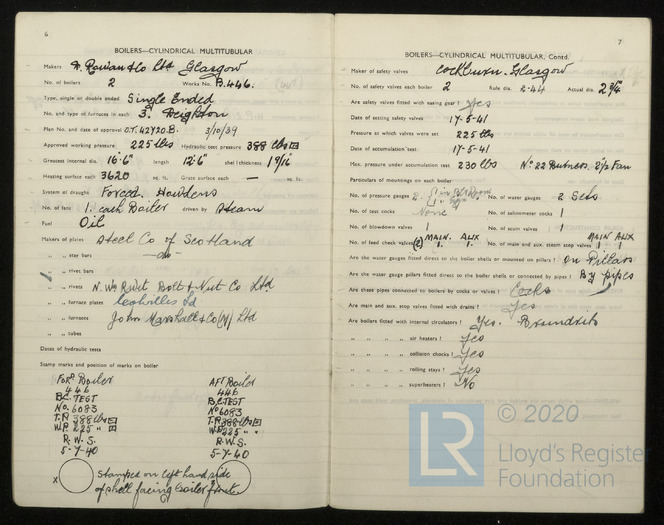 6
BOILERS—CYLINDRICAL MULTITUBULAR
Makers D. Rowan & Co Ltd Glasgow
No. of boilers 2 Works No. B.446.
Type, single or double ended Single Ended
No. and type of furnaces in each 3. Deighton
Plan No. and date of approval O.T. 42720.B. 3/10/39
Approved working pressure 225 lbs Hydraulic test pressure 388 lbs
Greatest internal dia. 16'.6" length 12'.6" shell thickness 1 9/16"
Heating surface each 3620 sq. ft. Grate surface each — sq. ft.
System of draught Forced. Howdens
No. of fans 1. each Boiler driven by Steam
Fuel Oil
Makers of plates Steel Co of Scotland
„ „ stay bars —do—
„ „ rivet bars
„ „ rivets N. Wm Rivet Bolt & Nut Co Ltd
„ „ furnace plates Colvilles Ld
„ „ furnaces John Marshall & Co Ltd
„ „ tubes
Dates of hydraulic tests
Stamp marks and position of marks on boiler
For'd Boiler Aft Boiler
446 446
B.C. TEST B.C. TEST
No. 6083 No 6083
T.P. 388 lbs T.P. 388 lbs
W.P. 225 " W.P. 225 "
R.W.S. R.W.S.
5-7-40 5-7-40
x Stamped on left hand side
of shell facing boiler fronts
7
BOILERS—CYLINDRICAL MULTITUBULAR, Contd.
Maker of safety valves Cockburn. Glasgow
No. of safety valves each boiler 2 Rule dia. 2.44 Actual dia. 2 3/4"
Are safety valves fitted with easing gear? Yes
Date of setting safety valves 17-5-41
Pressure at which valves were set 225 lbs
Date of accumulation test 17-5-41
Max. pressure under accumulation test 230 lbs No 22 Burners. 2 1/2 Fan
Particulars of mountings on each boiler
No. of pressure gauges 2 No. of water gauges 2 Sets
No. of test cocks None No. of salinometer cocks 1
No. of blowdown valves 1 No. of scum valves 1
MAIN. AUX MAIN AUX
No. of feed check valves 2 1. 1. No. of main and aux. steam stop valves 1 1
Are the water gauges fitted direct to the boiler shells or mounted on pillars? On Pillars
Are the water gauge pillars fitted direct to the boiler shells or connected by pipes? By pipes
Are these pipes connected to boilers by cocks or valves? Cocks
Are main and aux. stop valves fitted with drains? Yes
Are boilers fitted with internal circulators? Yes. Brundrits
„ „ „ „ air heaters? Yes
„ „ „ „ collision chocks? Yes
„ „ „ „ rolling stays? Yes
„ „ „ „ superheaters? No
LR
© 2020
Lloyd's Register
Foundation